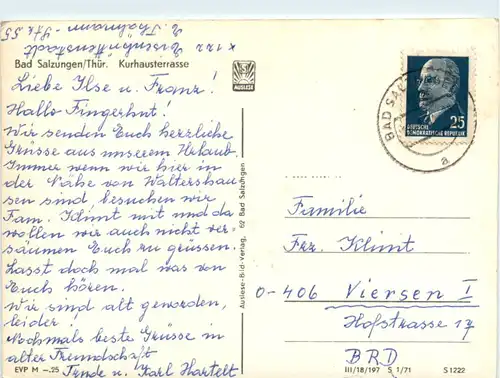 Bad Salzungen/Thür. Kurhausterrasse
Liebe Ilse u. Franz!
Hallo Fingerhut!
Wir senden Euch herzliche
Grüsse aus unserem Urlaub.
Immer wenn wir hier in
der Nähe von Waltershau
sen sind, besuchen wir
Fam. Klimt mit und da
wollen wir auch nicht ver-
säumen Euch zu grüssen.
Lasst doch mal was von
Euch hören.
Wir sind alt geworden,
leider.
Nochmals beste Grüsse in
alter Freundschaft
Trude u. Karl Hartelt
EVP M –.25
x 122 Eisenhüttenstadt
E. Thälmann - Str. 55
AUSLESE
Auslese-Bild-Verlag, 62 Bad Salzungen
25
DEUTSCHE
DEMOKRATISCHE REPUBLIK
BAD
a
Familie
Frz. Klimt
O-406 Viersen I
Hofstrasse 17
BRD
III/18/197 S 1/71 S 1222